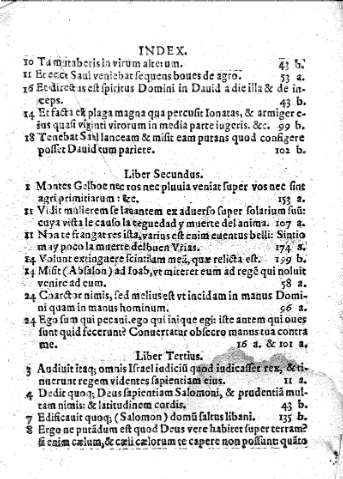 INDEX.
10 Et mutaberis in virum alterum. 43 b.
11 Et ecce Saul veniebat sequens boues de agro. 53 a.
16 Et directus est spiritus Domini in Dauid a die illa & deinceps. 43 b.
14 Et facta est plaga magna qua percusit Ionatas, & armiger e-
ius quasi viginti virorum in media parte iugeris. &c. 99 b.
18 Tenebat Saul lanceam & misit eam putans quod configere
posset Dauid cum pariete. 102 b.
Liber Secundus.
1 Montes Gelboe nec ros nec pluuia veniat super vos nec sint
agri primitiarum : &c. 153 a.
11 Vidit mulierem se lauantem ex aduerso super solarium suũ:
cuya vista le causo la ceguedad y muerte del anima. 107 a.
11 Non te frangat res ista, varius est enim euentus belli: Sintio
may poco la muerte del buen Vrias. 174 a.
14 Volunt extinguere scintilam meã, quæ relicta est. 199 b.
14 Misit (Absalon) ad Ioab, vt miteret eum ad regẽ qui noluit
venire ad eum. 58 a.
24 Coarctor nimis, sed melius est vt incidam in manus Domi-
ni quam in manus hominum. 96 a.
24 Ego sum qui pecaui. ego qui inique egi: iste antem qui oues
sunt quid fecerunt? Conuertatur obsecro manus tua contra
me. 16 a. & 101 a.
Liber Tertius.
3 Audiuit itaq; omnis Israel iudiciũ quod iudicasset rex, & ti-
nuerunt regem videntes sapientiam eius. 11 a.
4 Dedit quoq; Deus sapientiam Salomoni, & prudentiã mul-
tam nimis: & latitudinem cordis. 43 b.
7 Edificauit quoq; (Salomon) domũ saltus libani. 135 b.
8 Ergo ne putãdum est quod Deus vere habitet super terram?
si enim cælum, & cæli cælorum te capere non possunt: quãto